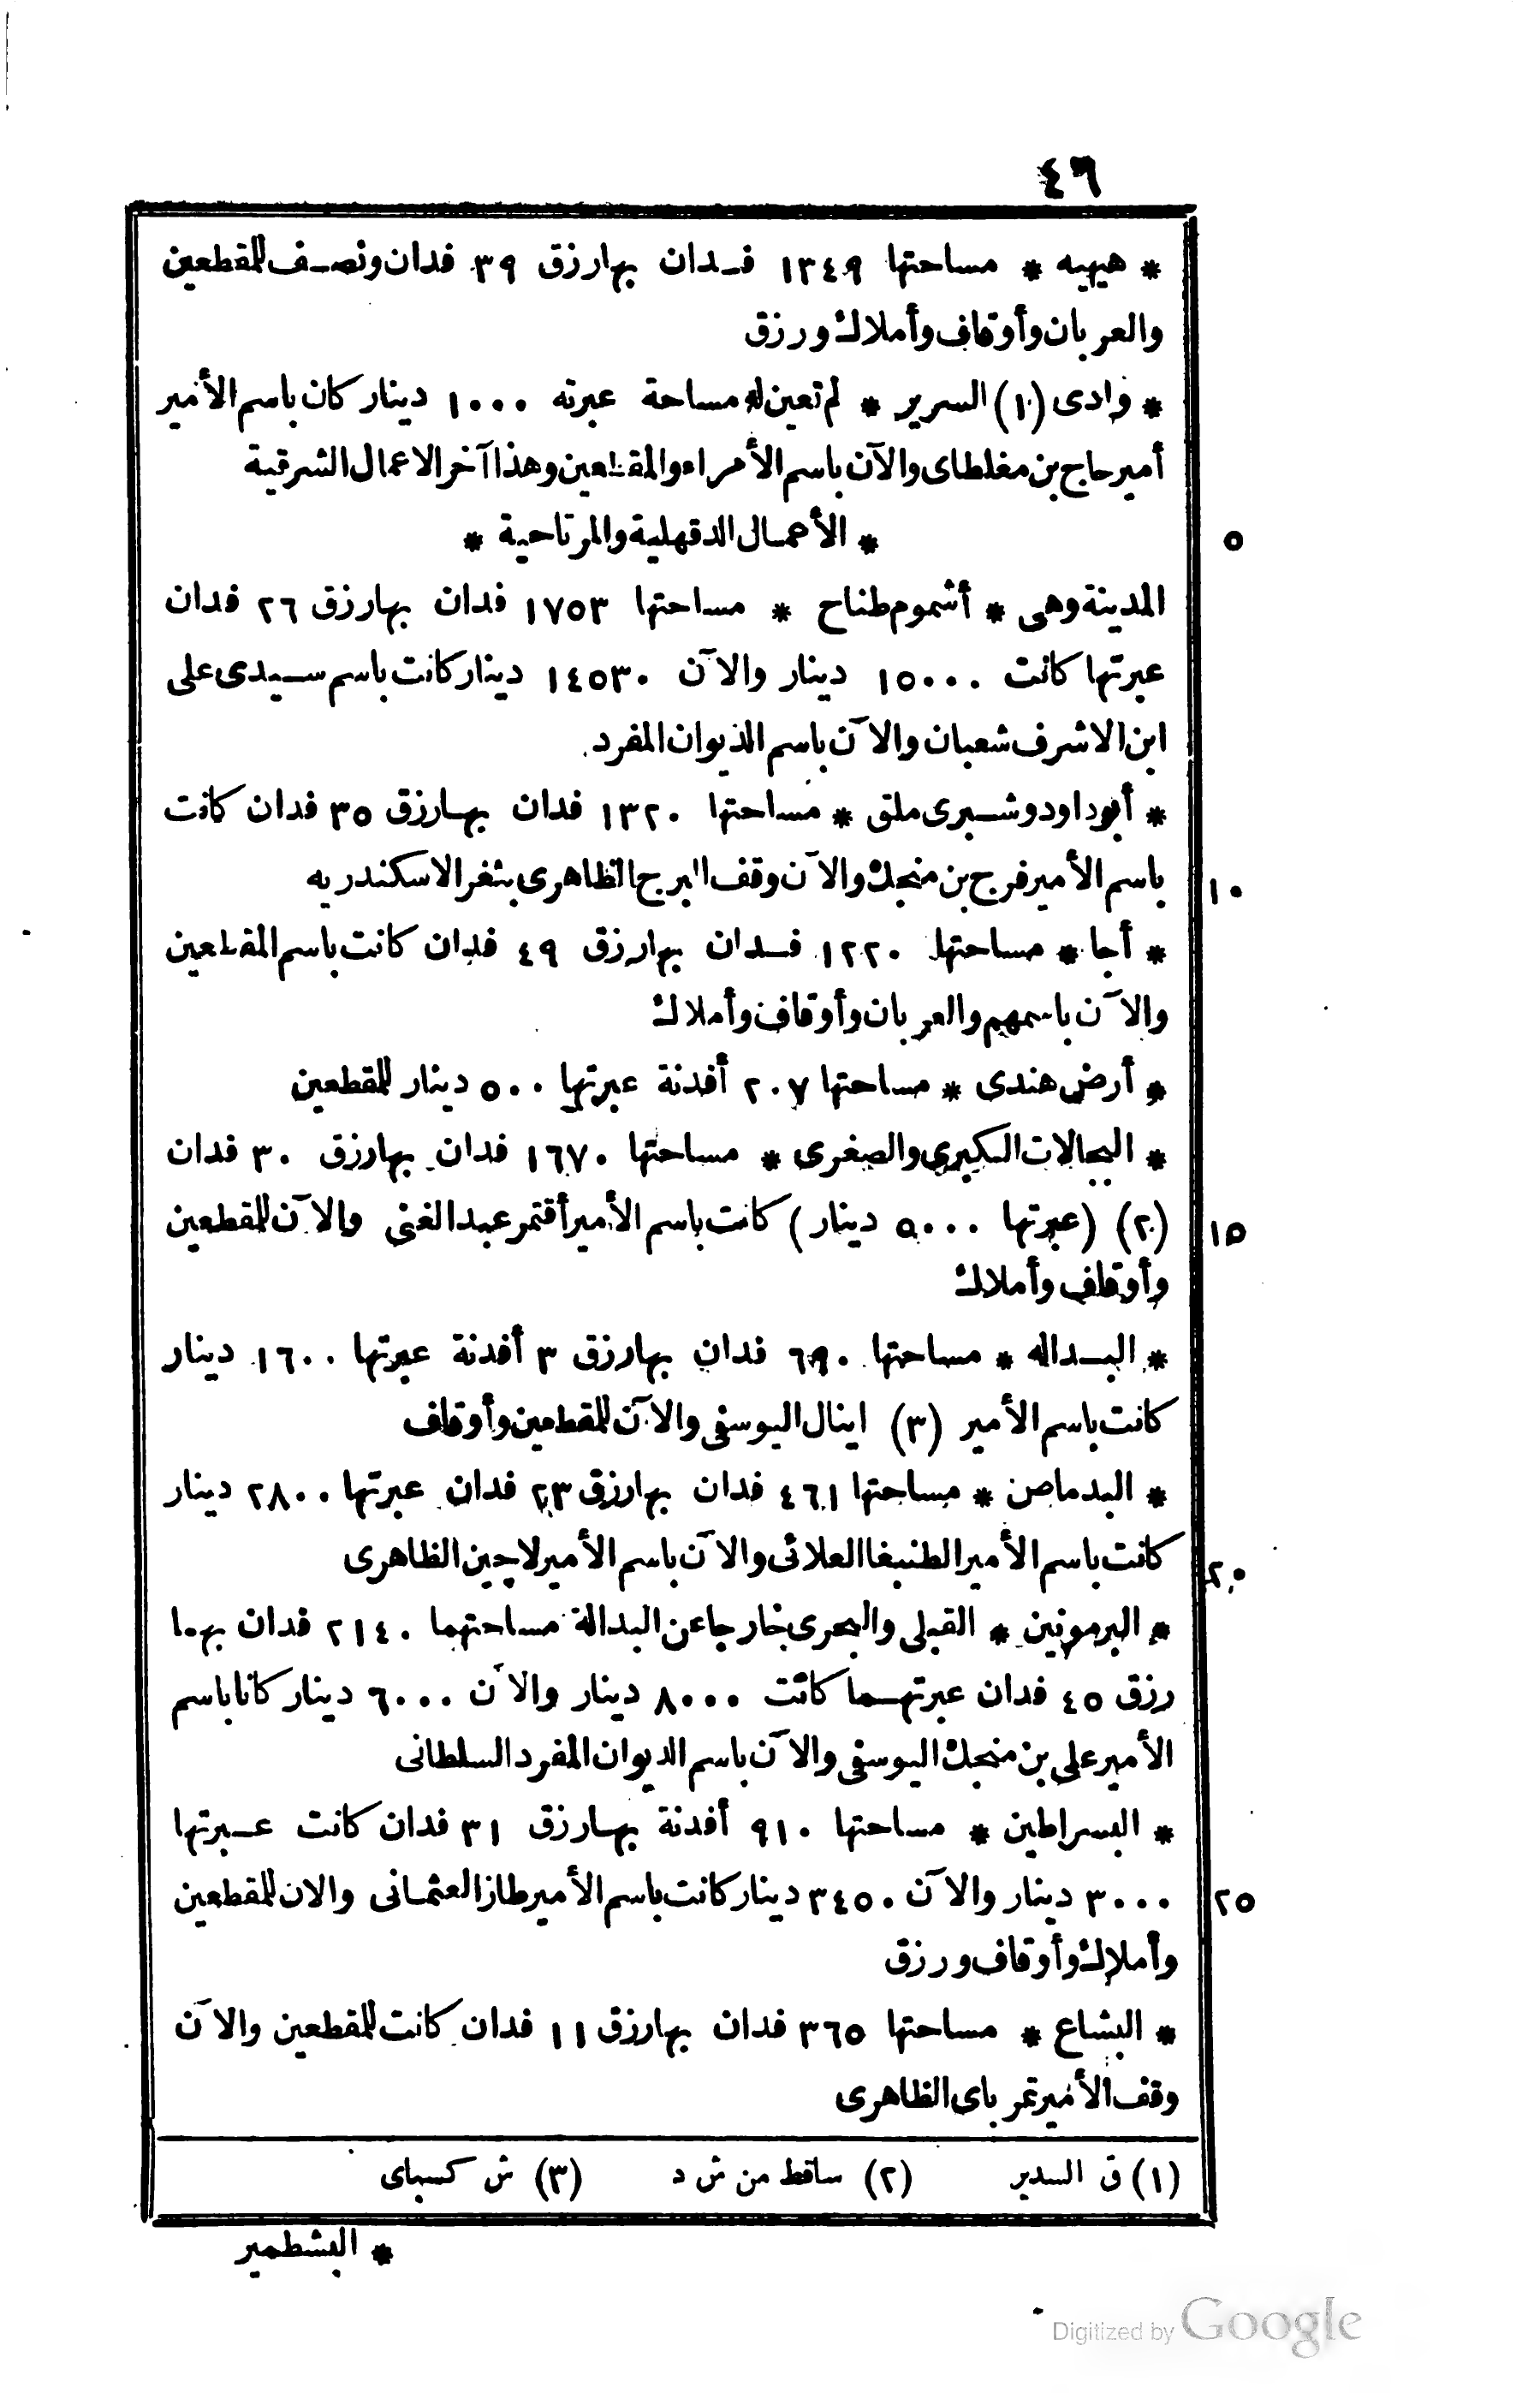 ٤٦
* هيهيه * مساحتها ١٣٤٩ فـدان بها رزق ٣٩ فدان ونصـف للمقطعين
والعربان وأوقاف وأملاك ورزق
* وادى (١) السرير * لم تعين له مساحة عبرته ١٠٠٠ دينار كان باسم الأمير
أمير حاج بن مغلطاى والآن باسم الأمراء والمقطعين وهذا آخر الاعمال الشرقية
* الأعمال الدقهلية والمرتاحية *
٥
المدينة وهى * أشموم طناح * مساحتها ١٧٥٣ فدان بها رزق ٢٦ فدان
عبرتها كانت ١٥٠٠٠ دينار والآن ١٤٥٣٠ دينار كانت باسم سـيدى على
ابن الاشرف شعبان والآن باسم الديوان المفرد
* أبو داود وشبرى ملق * مساحتها ١٣٢٠ فدان بها رزق ٣٥ فدان كانت
باسم الأمير فرج بن منجك والآن وقف البرج الظاهرى بثغر الاسكندريه
١٠
* أجا * مساحتها ١٢٢٠ فـدان بها رزق ٤٩ فدان كانت باسم المقطعين
والآن باسمهم والعربان وأوقاف وأملاك
* أرض هندى * مساحتها ٢٠٧ أفدنة عبرتها ٥٠٠ دينار للمقطعين
* البجالات الكبرى والصغرى * مساحتها ١٦٧٠ فدان بها رزق ٣٠ فدان
(٢) (عبرتها ٥٠٠٠ دينار) كانت باسم الأمير أقتمر عبد الغنى والآن للمقطعين
١٥
وأوقاف وأملاك
* البـداله * مساحتها ٦٩٠ فدان بها رزق ٣ أفدنة عبرتها ١٦٠٠ دينار
كانت باسم الأمير (٣) اينال اليوسفى والآن للمقطعين وأوقاف
* البدماص * مساحتها ٤٦١ فدان بها رزق ٢٣ فدان عبرتها ٢٨٠٠ دينار
كانت باسم الأمير الطنبغا العلائى والآن باسم الأمير لاجين الظاهرى
٢٠
* البرمونين * القبلى والبحرى خارجا عن البدالة مساحتهما ٢١٤٠ فدان بهما
رزق ٤٥ فدان عبرتهـما كانت ٨٠٠٠ دينار والآن ٦٠٠٠ دينار كانا باسم
الأمير على بن منجك اليوسفى والآن باسم الديوان المفرد السلطانى
* البسراطين * مساحتها ٩١٠ أفدنة بها رزق ٣١ فدان كانت عـبرتها
٣٠٠٠ دينار والآن ٣٤٥٠ دينار كانت باسم الأمير طاز العثمـانى والان للمقطعين
٢٥
وأملاك وأوقاف ورزق
* البشاع * مساحتها ٣٦٥ فدان بها رزق ١١ فدان كانت للمقطعين والآن
وقف الأمير تمرباى الظاهرى
(١) ق السدير (٢) ساقط من ش د (٣) ش كسباى
* البشطمير
Digitized by Google